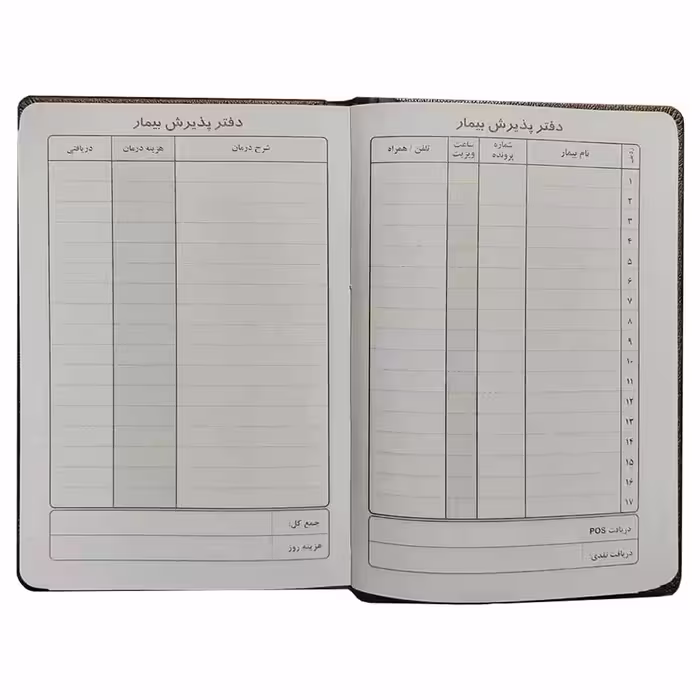 دفتر پذیرش بیمار
ردیف نام بیمار شماره پرونده ساعت ویزیت تلفن / همراه
۱
۲
۳
۴
۵
۶
۷
۸
۹
۱۰
۱۱
۱۲
۱۳
۱۴
۱۵
۱۶
۱۷
دریافت POS
دریافت نقدی:
دفتر پذیرش بیمار
شرح درمان هزینه درمان دریافتی
جمع کل:
هزینه روز